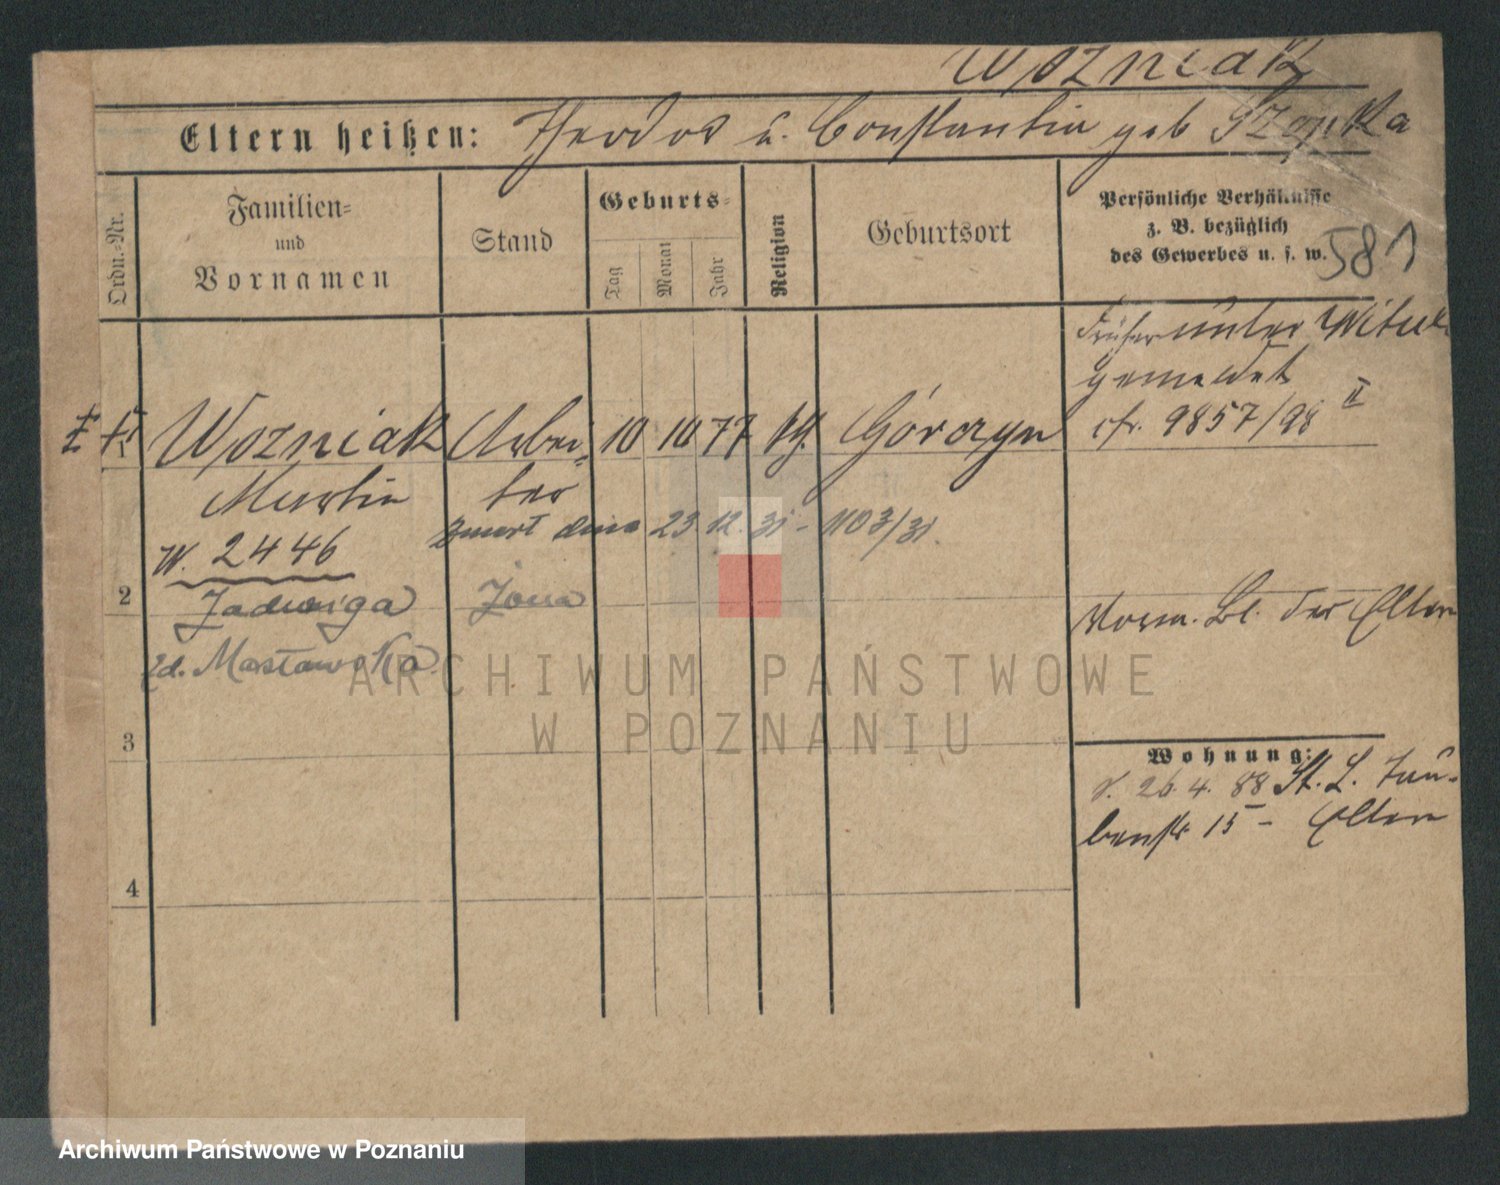 Wozniak
Eltern heißen: Theodor u. Constantia geb Szopka
Ordn.-Nr.
Familien-
und
Vornamen
Stand
Geburts-
Tag
Monat
Jahr
Religion
Geburtsort
Persönliche Verhältnisse
z. B. bezüglich
des Gewerbes u. s. w.
581
Früher unter
gemeldet
cfr. 9857/98 II
Wozniak Arbei- 10 10 77 Górczyn
Martin ter
zmarł dnia 23 12. 31 - 1103/31.
W. 2446
2 Jadwiga żona
zd. Masławska
Vorm. Bl. der Eltern
3
Wohnung:
v. 26. 4. 88 St. L. Tau-
benstr 15 - Eltern
4
ARCHIWUM PAŃSTWOWE
W POZNANIU
Archiwum Państwowe w Poznaniu